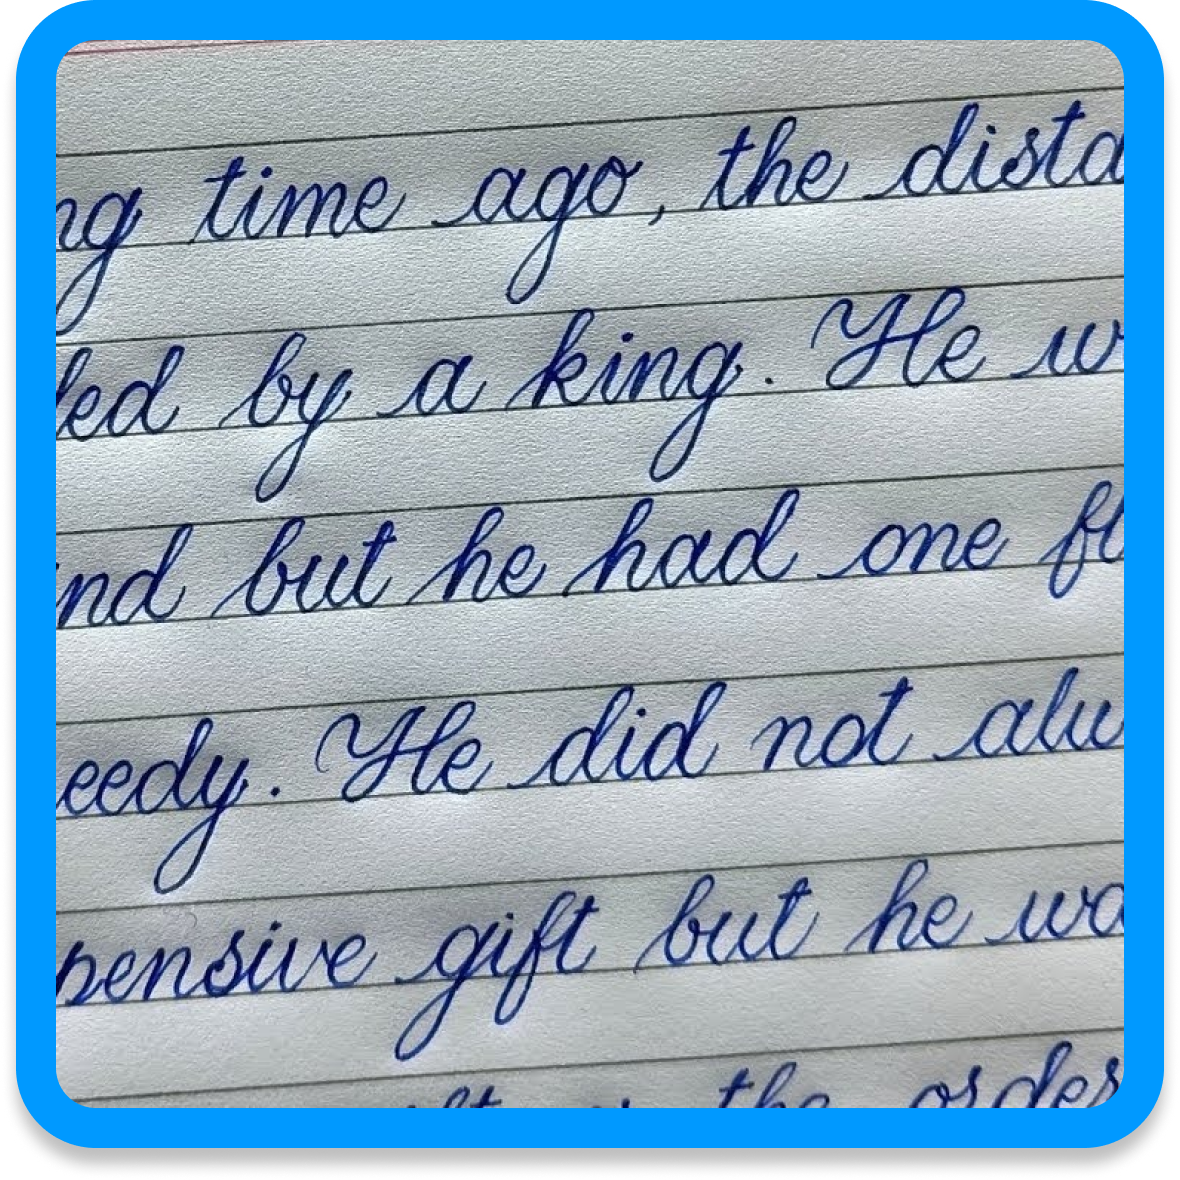 ng time ago, the dista
led by a king. He w
nd but he had one fl
eedy. He did not alw
pensive gift but he wa
the order